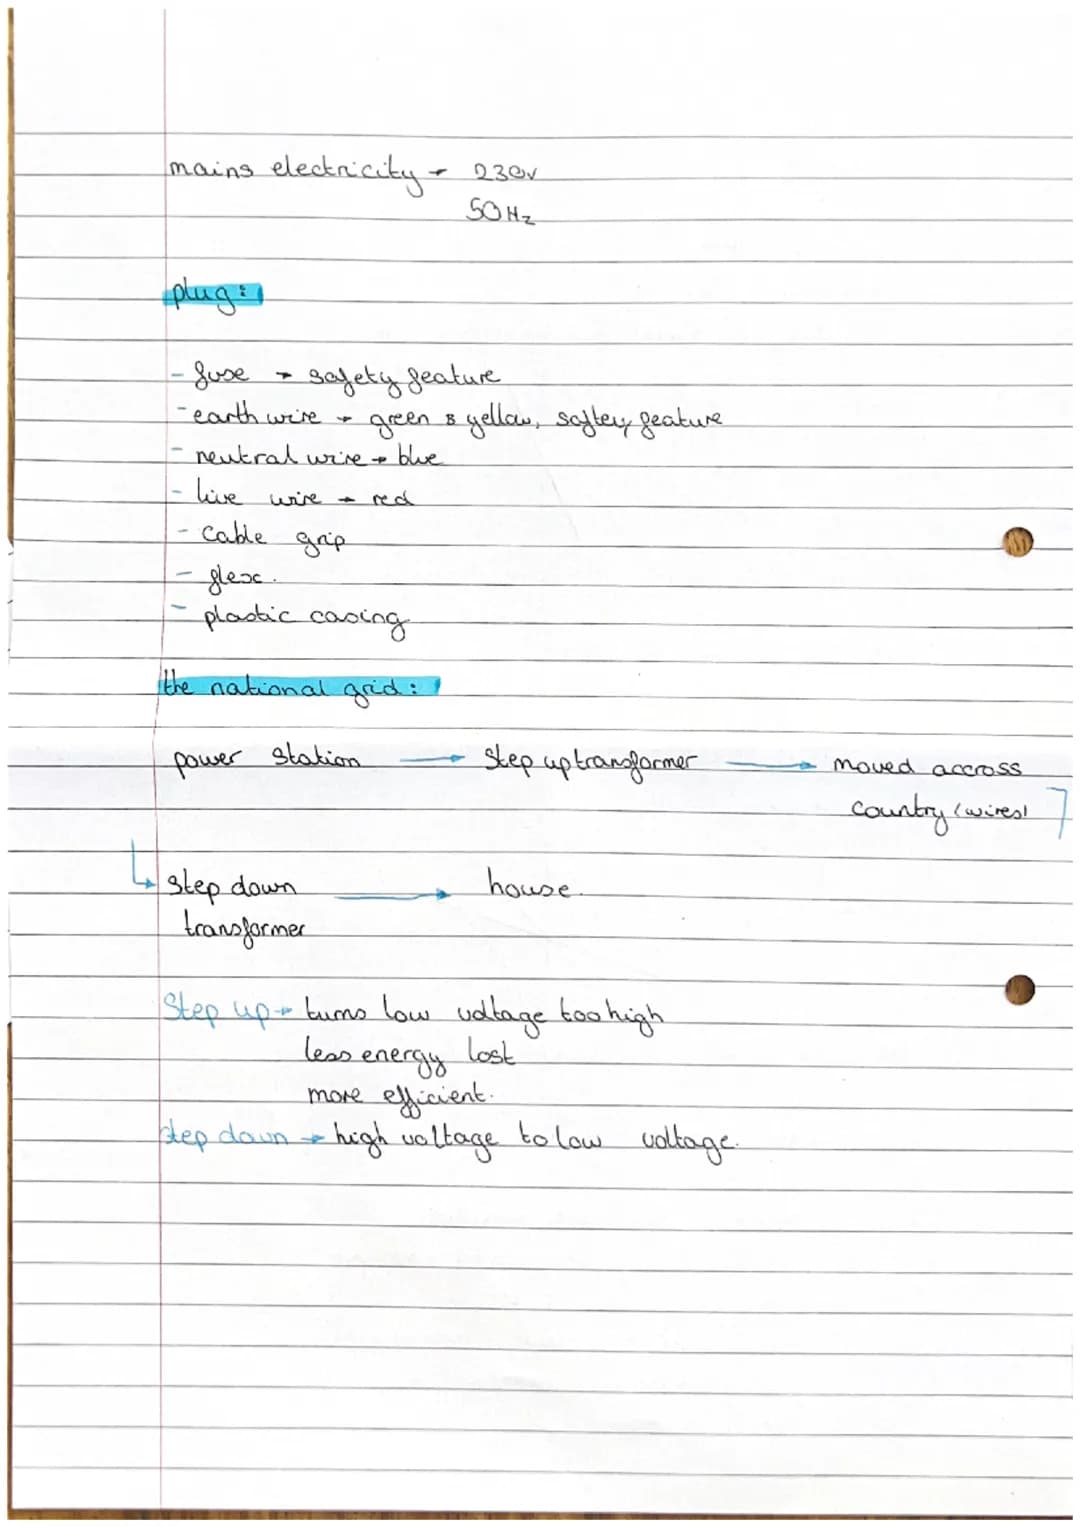 mains electricity → 230v
50Hz
plug:
- fuse → safety feature
- earth wire → green & yellow, saftey feature
- neutral wire → blue
- live wire → red
- cable grip
- flex.
- plastic casing
the national grid:
power station → step up transformer → moved accross
country (wires)
↳ step down → house.
transformer
Step up → turns low voltage too high
less energy lost
more efficient.
step down → high voltage to low voltage.